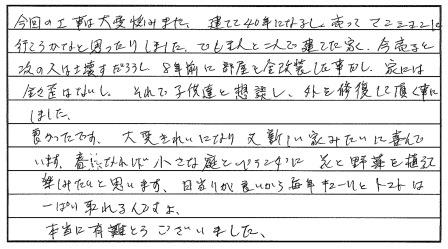 今回の工事は大変悩みました。建てて40年になるし。売ってマンションに
行こうかなと思ったりしました。でも主人と二人で建てた家で、今売ると
次の人は壊すだろうし 8年前に部屋を全改装した事だし、家には
全く歪はないし、それで子供達と相談し、外を修復して頂く事に
しました。
良かったです。大変きれいになり 又新しい家みたいに喜んで
います。春になれば小さな庭とベランダに 花と野菜を植えて
楽しみたいと思います。日当りが良いから毎年キューリとトマトは
一ぱい取れるんですよ、
本当に有難とうございました。